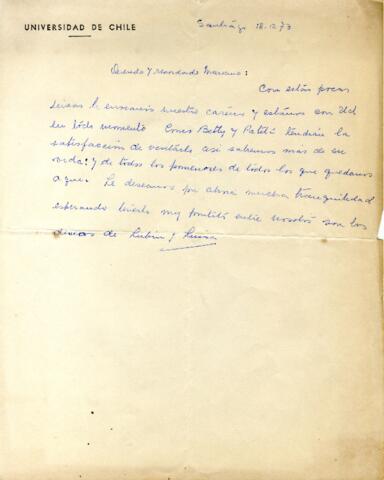 UNIVERSIDAD DE CHILE
Santiago 18.12.73
Querido y recordado Mariano:
Con estas pocas
líneas le enviamos nuestro cariño y estamos con Ud
en todo momento Como Betty y Patité tendrán la
satisfacción de verlo así sabremos más de su
vida: y de todos los pormenores de todos los que quedamos
aquí. Le deseamos por ahora mucha tranquilidad
esperando tenerlo muy prontito entre nosotros son los
deseos de Rubén y